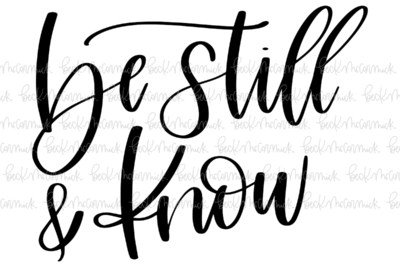 be still
& know